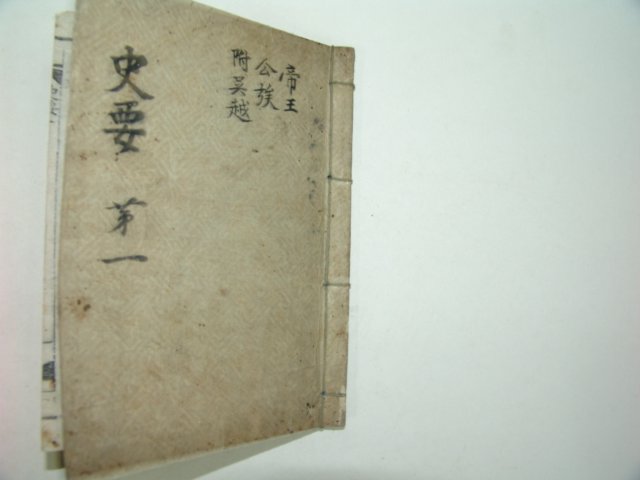 帝王
公族
附吳越
史要 第一